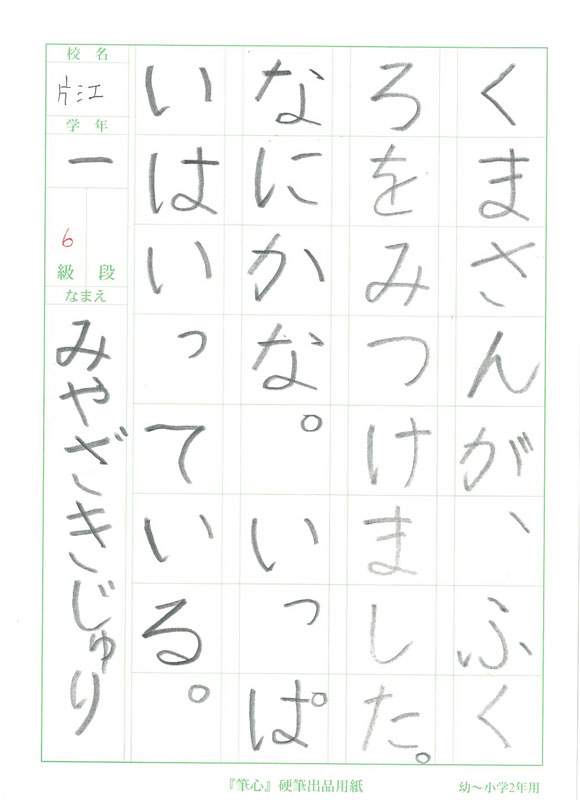 くまさんが、ふく
ろをみつけました。
なにかな。いっぱ
いはいっている。
校名
片江
学年
一
6
級 段
なまえ
みやざきじゅり
『筆心』硬筆出品用紙
幼〜小学2年用